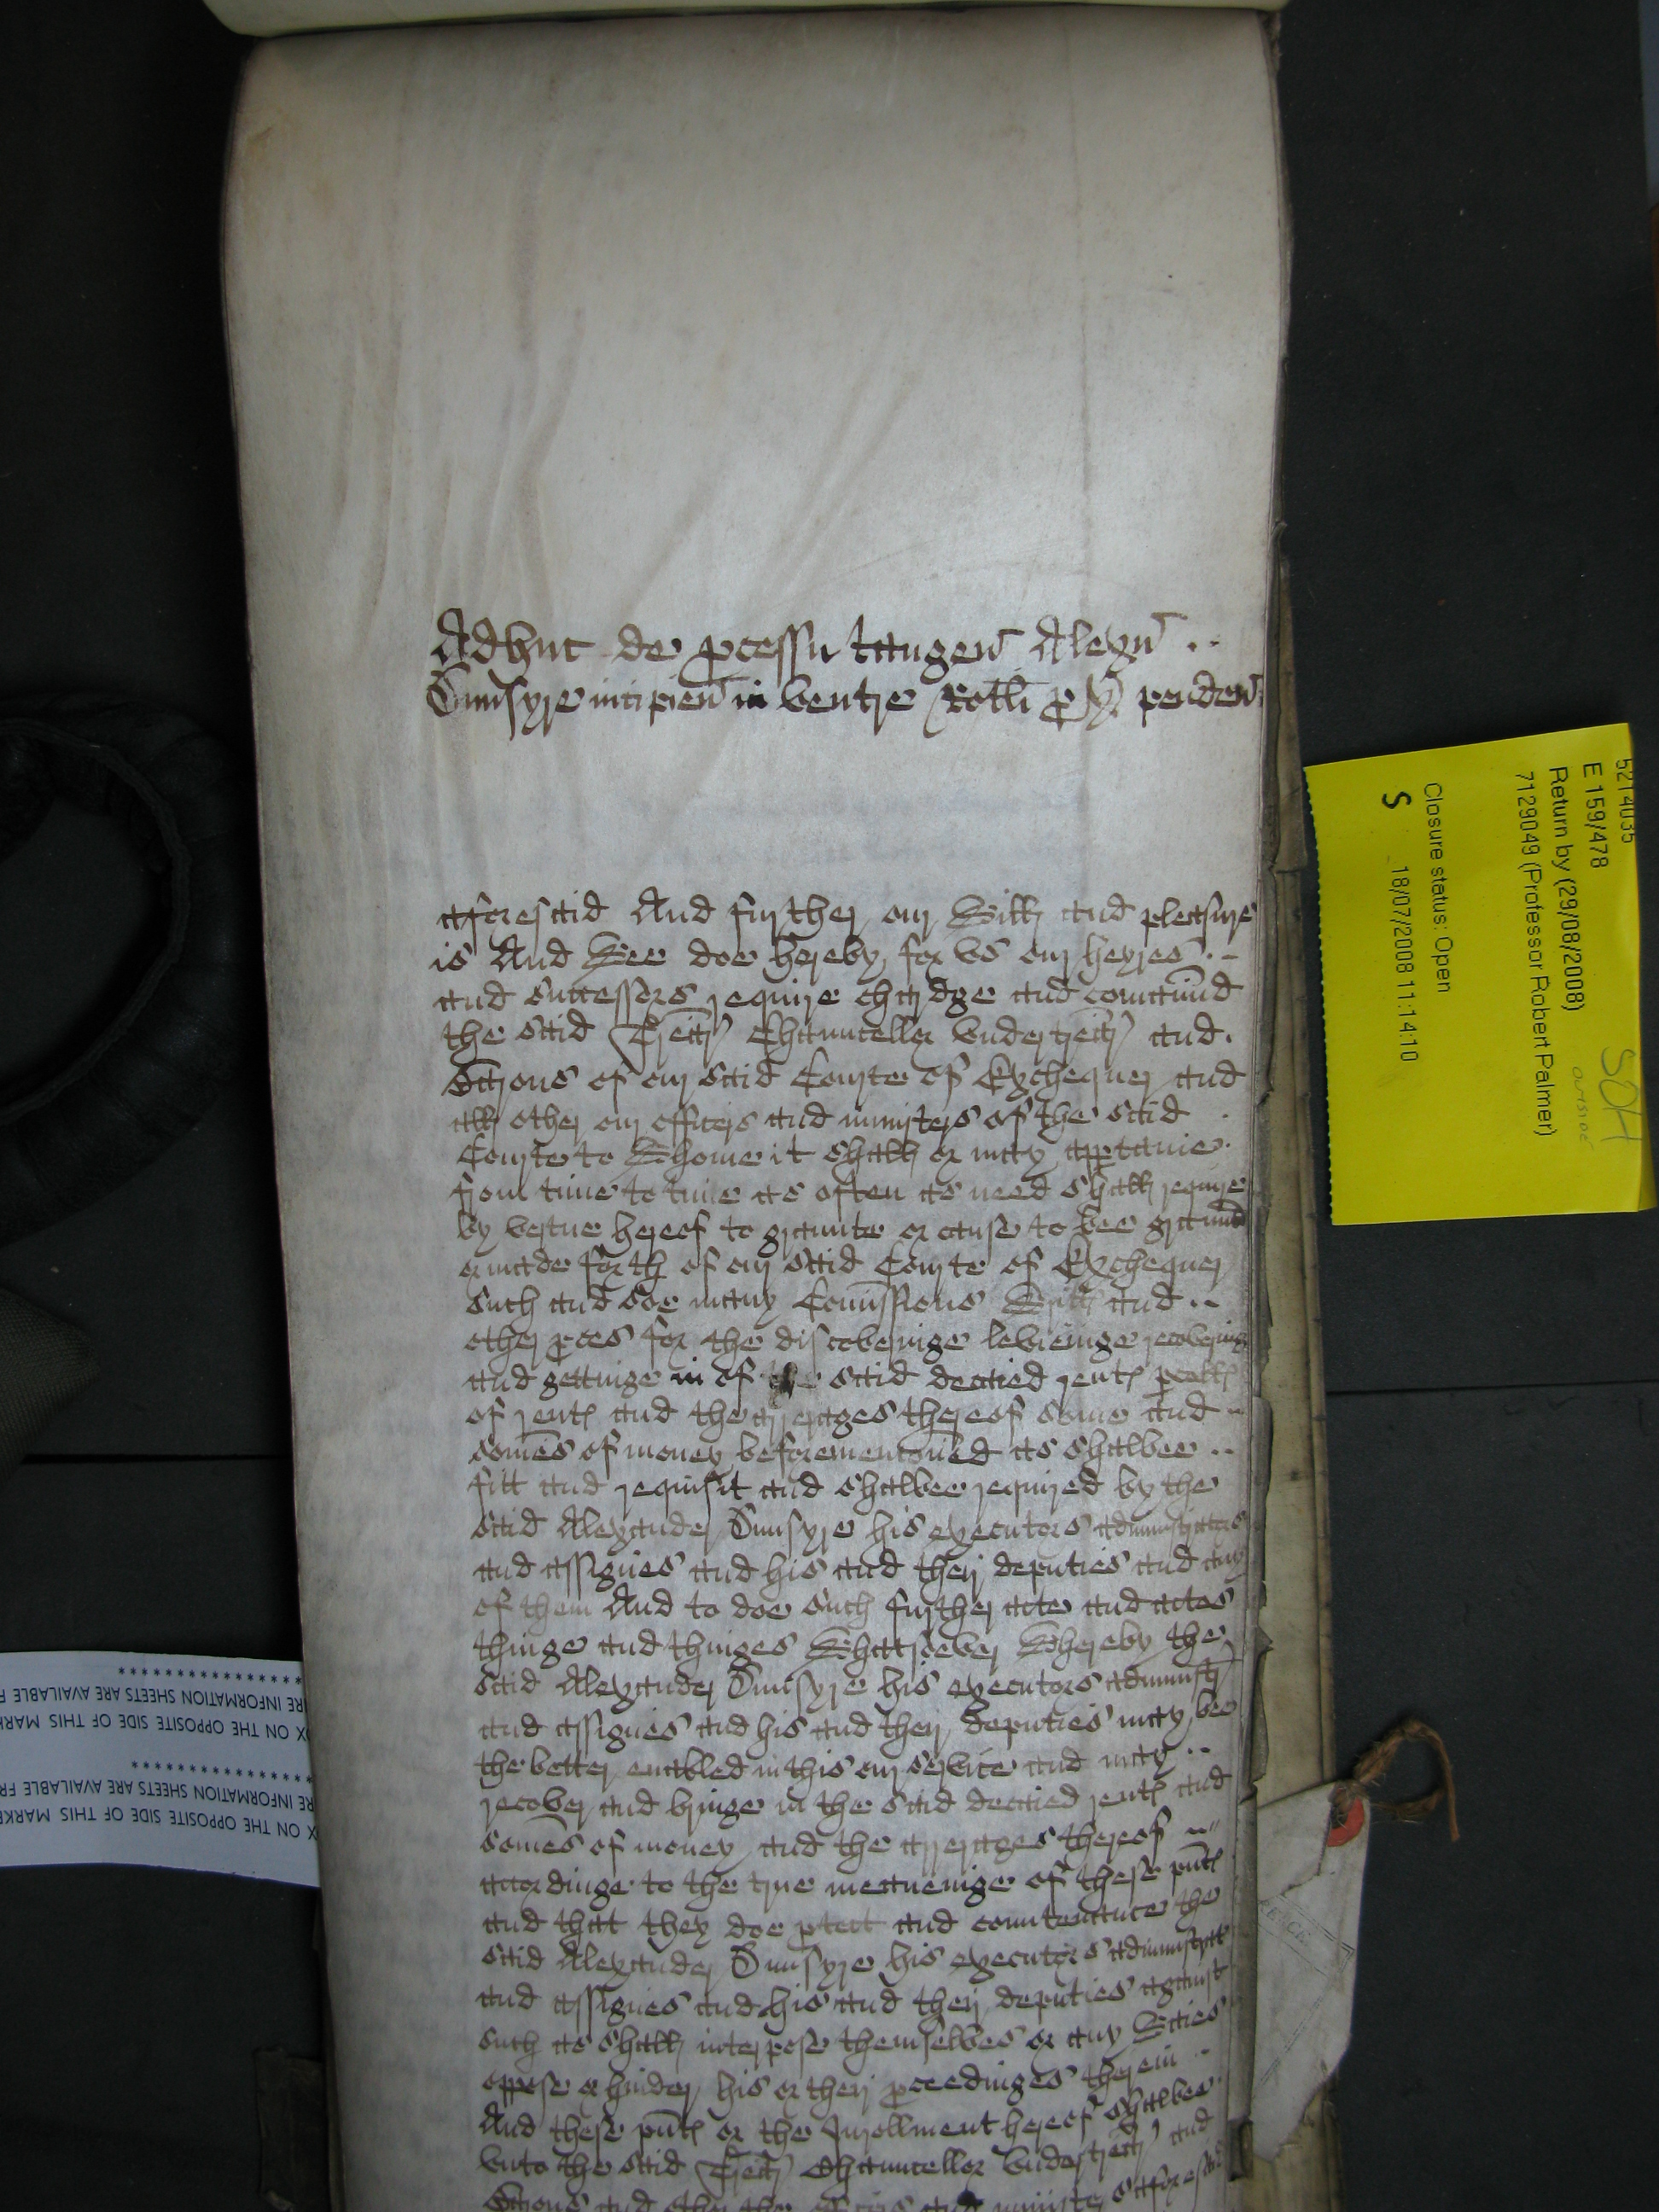 Adhuc de pcessu tangen Alexn ..
Dunsyre incipien in ventre Rotli p penden
aforesaid And further our Will and pleasure
is And Wee doe hereby for vs our heyres .-
and successors require chardge and comaund
the said Trer Chauncellor vndertrer and.
Barons of our said Courte of Exchequer and
all other our officers and ministers of the said .
Courte to Whome it shall or may apptaine.
from time to time as often as need shall require
by vertue hereof to graunte or cause to bee graunted
or made forth of our said Courte of Exchequer
such and soe many Comissions Writts and ..
other pces for the discoveringe levieinge recoveringe
and gettinge in of the said decaied rents
of rents and the arrerages thereof some and ..
somes of money beforementoned as shalbee ..
fitt and requisit and shalbee required by the
said Alexander Dunsyre his executors administrators
and assignes and his and their deputies and any
of them And to doe such further acte and actes
thinge and thinges Whatsoever Whereby the
said Alexander Dunsyre his executors administr
and assignes and his and their deputies may bee
the better enabled in this our service and may ..
recover and bringe in the said decaied rents and
somes of money and the arrerages thereof ..
accordinge to the true meaneinge of these pnts
and that they doe ptect and countenance the
said Alexander Dunsyre his executors administrat
and assignes and his and their deputies against
such as shall interpose themselves or any Waies
oppose or hinder his or their pceedinges therein ..
And these pnts or the Inrollment hereof shalbee
vnto the said Trer Chauncellor Vndertrer and
Barons and other the officers and ministers aforesaid
5214035
E 159/478
Return by (29/08/2008)
7129049 (Professor Robert Palmer)
Closure status: Open
S 18/07/2008 11:14:10
OUTSIDE
RE INFORMATION SHEETS ARE AVAILABLE FR
X ON THE OPPOSITE SIDE OF THIS MARKE
****************
RE INFORMATION SHEETS ARE AVAILABLE F
X ON THE OPPOSITE SIDE OF THIS MARK
****************